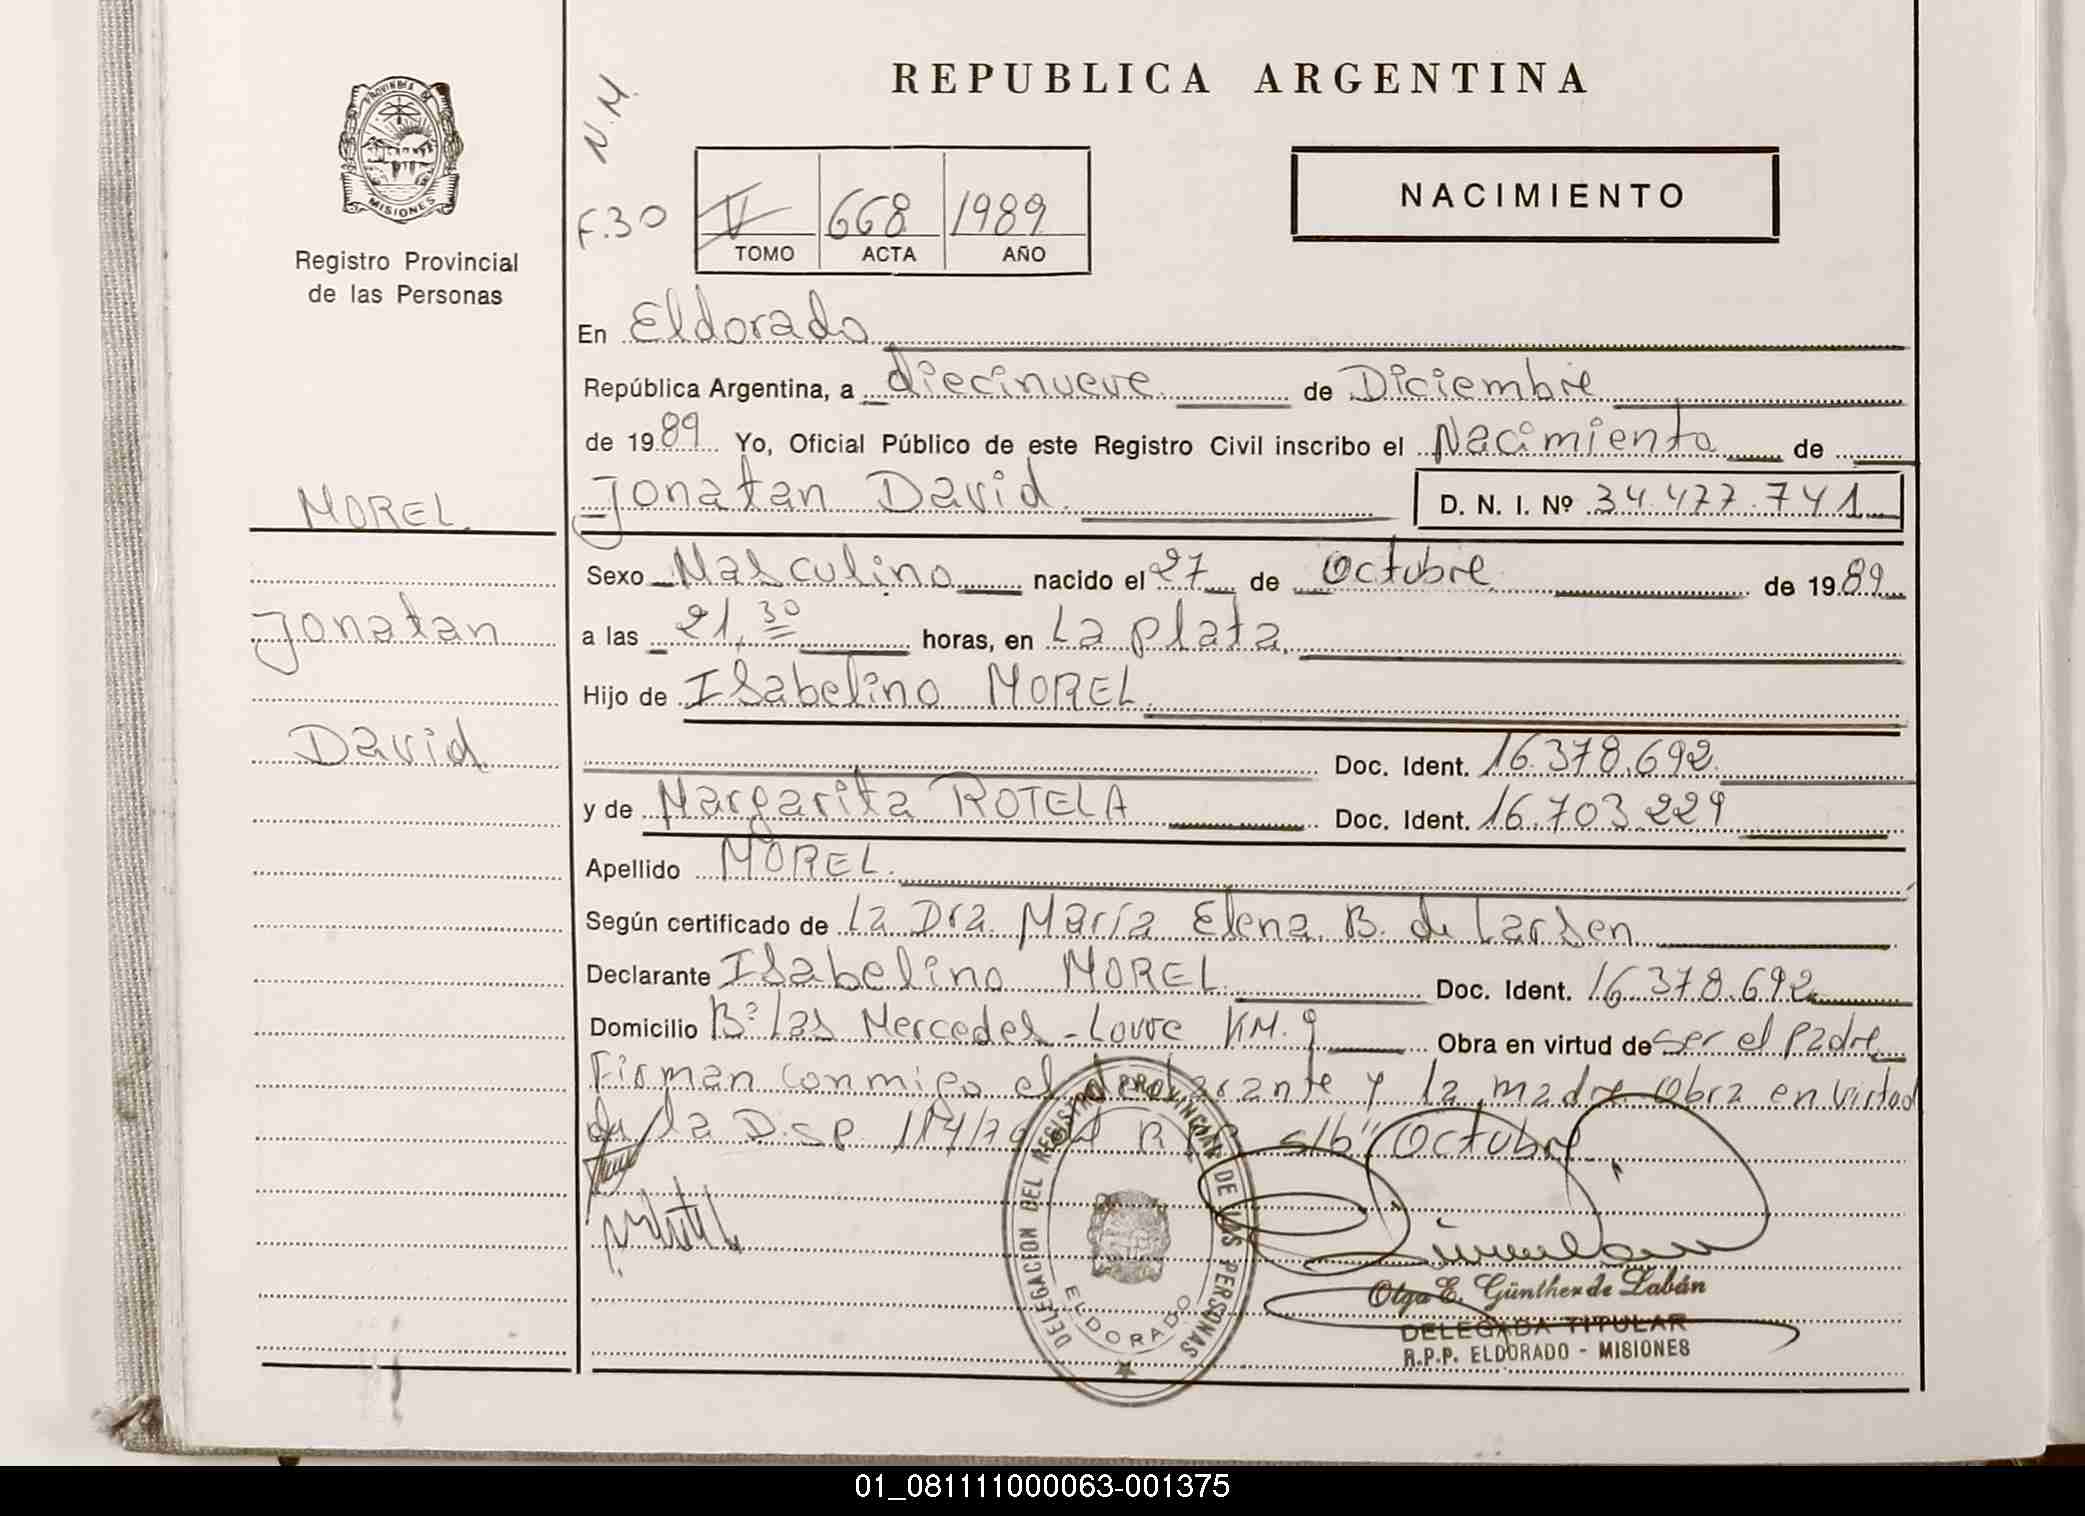 REPUBLICA ARGENTINA
PROVINCIA DE
MISIONES
Registro Provincial
de las Personas
N.M.
F.30
V 668 1989
TOMO ACTA AÑO
NACIMIENTO
En Eldorado
República Argentina, a diecinueve de Diciembre
de 1989 Yo, Oficial Público de este Registro Civil inscribo el Nacimiento de
Jonatan David D. N. I. Nº 34.477.741
MOREL
Jonatan
David
Sexo Masculino nacido el 27 de Octubre de 1989
a las 21,30 horas, en La plata,
Hijo de Isabelino MOREL
Doc. Ident. 16.378.692
y de Margarita ROTELA Doc. Ident. 16.703.229
Apellido MOREL.
Según certificado de La Dra. María Elena B. de Larsen
Declarante Isabelino MOREL Doc. Ident. 16.378.692
Domicilio Bº Las Mercedes - KM. 9 Obra en virtud de ser el padre
Firman conmigo el declarante y la madre. Obra en virtud
de la Disp. Octubre
DELEGACION DEL REGISTRO PROVINCIAL DE LAS PERSONAS
ELDORADO
Olga E. Günther de Labán
DELEGADA TITULAR
R.P.P. ELDORADO - MISIONES
01_081111000063-001375